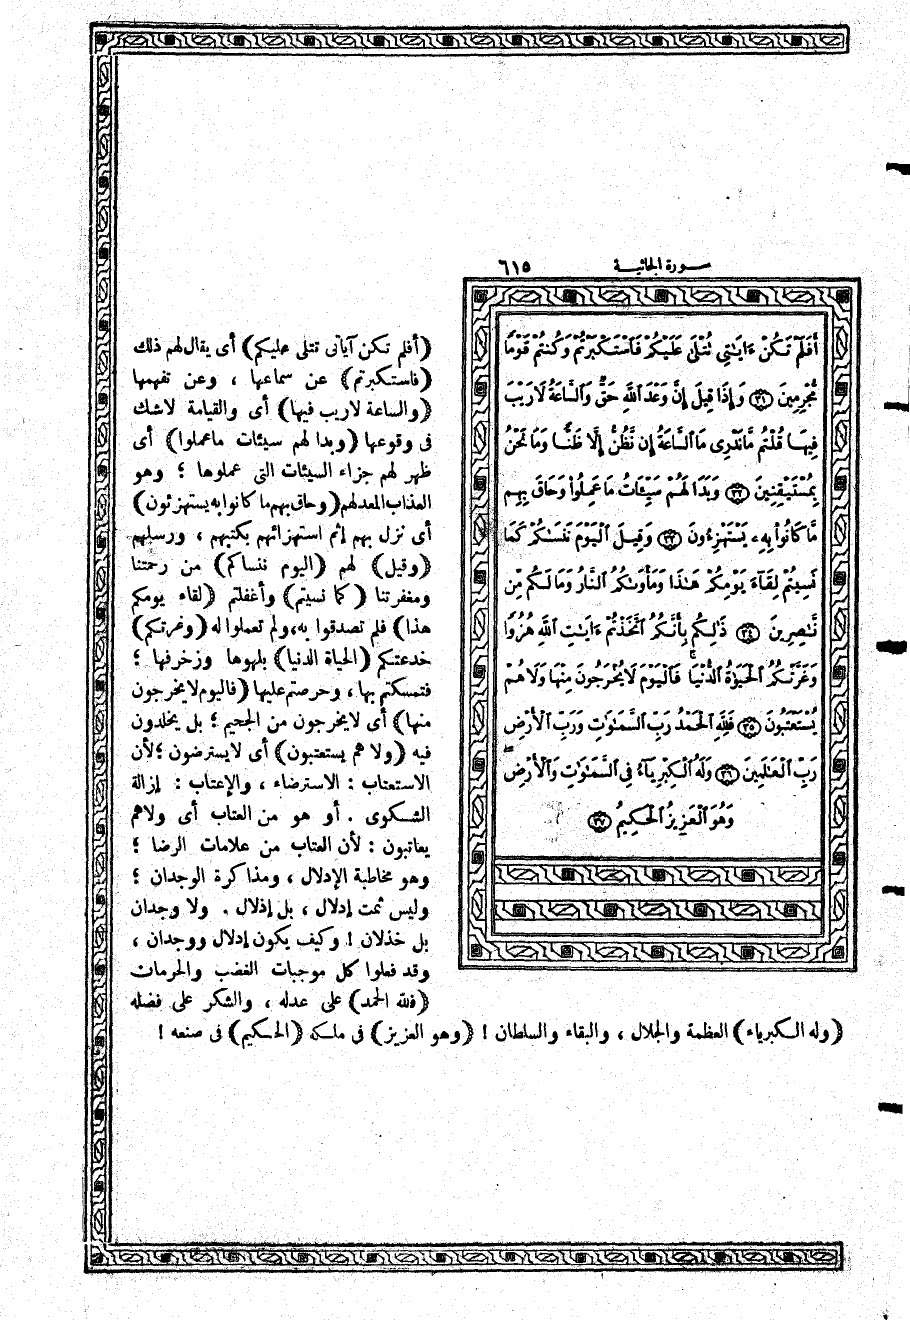 سورة الجاثية ٦١٥
أَفَلَمْ تَكُنْ ءَايَـٰتِى تُتْلَىٰ عَلَيْكُمْ فَٱسْتَكْبَرْتُمْ وَكُنتُمْ قَوْمًا
مُّجْرِمِينَ ٣١ وَإِذَا قِيلَ إِنَّ وَعْدَ ٱللَّهِ حَقٌّ وَٱلسَّاعَةُ لَا رَيْبَ
فِيهَا قُلْتُم مَّا نَدْرِى مَا ٱلسَّاعَةُ إِن نَّظُنُّ إِلَّا ظَنًّا وَمَا نَحْنُ
بِمُسْتَيْقِنِينَ ٣٢ وَبَدَا لَهُمْ سَيِّـَٔاتُ مَا عَمِلُوا۟ وَحَاقَ بِهِم
مَّا كَانُوا۟ بِهِۦ يَسْتَهْزِءُونَ ٣٣ وَقِيلَ ٱلْيَوْمَ نَنسَىٰكُمْ كَمَا
نَسِيتُمْ لِقَآءَ يَوْمِكُمْ هَـٰذَا وَمَأْوَىٰكُمُ ٱلنَّارُ وَمَا لَكُم مِّن
نَّـٰصِرِينَ ٣٤ ذَٰلِكُم بِأَنَّكُمُ ٱتَّخَذْتُمْ ءَايَـٰتِ ٱللَّهِ هُزُوًا
وَغَرَّتْكُمُ ٱلْحَيَوٰةُ ٱلدُّنْيَا فَٱلْيَوْمَ لَا يُخْرَجُونَ مِنْهَا وَلَا هُمْ
يُسْتَعْتَبُونَ ٣٥ فَلِلَّهِ ٱلْحَمْدُ رَبِّ ٱلسَّمَـٰوَٰتِ وَرَبِّ ٱلْأَرْضِ
رَبِّ ٱلْعَـٰلَمِينَ ٣٦ وَلَهُ ٱلْكِبْرِيَآءُ فِى ٱلسَّمَـٰوَٰتِ وَٱلْأَرْضِ
وَهُوَ ٱلْعَزِيزُ ٱلْحَكِيمُ ٣٧
(أفلم تكن آياتى تتلى عليكم) أى يقال لهم ذلك
(فاستكبرتم) عن سماعها ، وعن تفهمها
(والساعة لاريب فيها) أى والقيامة لاشك
فى وقوعها (وبدا لهم سيئات ماعملوا) أى
ظهر لهم جزاء السيئات التى عملوها ؛ وهو
العذاب المعد لهم (وحاق بهم ما كانوا به يستهزئون)
أى نزل بهم إثم استهزائهم بكتبهم ، ورسلهم
(وقيل) لهم (اليوم ننساكم) من رحمتنا
ومغفرتنا (كما نسيتم) وأغفلتم (لقاء يومكم
هذا) فلم تصدقوا به، ولم تعملوا له (وغرتكم)
خدعتكم (الحياة الدنيا) بلهوها وزخرفها ؛
فتمسكتم بها ، وحرصتم عليها (فاليوم لا يخرجون
منها) أى لايخرجون من الجحيم ؛ بل يخلدون
فيه (ولا هم يستعتبون) أى لايسترضون ؛ لأن
الاستعتاب : الاسترضاء ، والإعتاب : إزالة
الشكوى . أو هو من العتاب أى ولاهم
يعاتبون : لأن العتاب من علامات الرضا ؛
وهو مخاطبة الإدلال ، ومذاكرة الوجدان ؛
وليس ثمت إدلال ، بل إذلال . ولا وجدان
بل خذلان ! وكيف يكون إدلال ووجدان ،
وقد فعلوا كل موجبات الغضب والحرمان
(فلله الحمد) على عدله ، والشكر على فضله
(وله الكبرياء) العظمة والجلال ، والبقاء والسلطان ! (وهو العزيز) فى ملكه (الحكيم) فى صنعه !